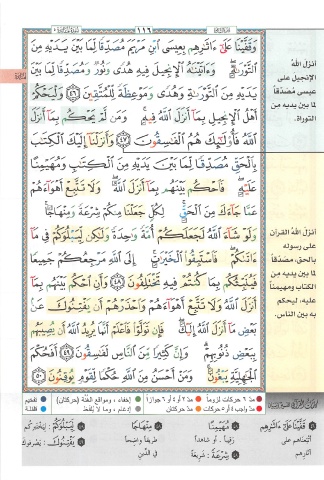 ١١٦
وَقَفَّيْنَا عَلَىٰٓ ءَاثَٰرِهِم بِعِيسَى ٱبْنِ مَرْيَمَ مُصَدِّقًا لِّمَا بَيْنَ يَدَيْهِ مِنَ
ٱلتَّوْرَىٰةِ ۖ وَءَاتَيْنَٰهُ ٱلْإِنجِيلَ فِيهِ هُدًى وَنُورٌ وَمُصَدِّقًا لِّمَا بَيْنَ
يَدَيْهِ مِنَ ٱلتَّوْرَىٰةِ وَهُدًى وَمَوْعِظَةً لِّلْمُتَّقِينَ ٤٦ وَلْيَحْكُمْ
أَهْلُ ٱلْإِنجِيلِ بِمَآ أَنزَلَ ٱللَّهُ فِيهِ ۚ وَمَن لَّمْ يَحْكُم بِمَآ أَنزَلَ
ٱللَّهُ فَأُو۟لَٰٓئِكَ هُمُ ٱلْفَٰسِقُونَ ٤٧ وَأَنزَلْنَآ إِلَيْكَ ٱلْكِتَٰبَ
بِٱلْحَقِّ مُصَدِّقًا لِّمَا بَيْنَ يَدَيْهِ مِنَ ٱلْكِتَٰبِ وَمُهَيْمِنًا
عَلَيْهِ ۖ فَٱحْكُم بَيْنَهُم بِمَآ أَنزَلَ ٱللَّهُ ۖ وَلَا تَتَّبِعْ أَهْوَآءَهُمْ
عَمَّا جَآءَكَ مِنَ ٱلْحَقِّ ۚ لِكُلٍّ جَعَلْنَا مِنكُمْ شِرْعَةً وَمِنْهَاجًا ۚ
وَلَوْ شَآءَ ٱللَّهُ لَجَعَلَكُمْ أُمَّةً وَٰحِدَةً وَلَٰكِن لِّيَبْلُوَكُمْ فِى مَآ
ءَاتَىٰكُمْ ۖ فَٱسْتَبِقُوا۟ ٱلْخَيْرَٰتِ ۚ إِلَى ٱللَّهِ مَرْجِعُكُمْ جَمِيعًا
فَيُنَبِّئُكُم بِمَا كُنتُمْ فِيهِ تَخْتَلِفُونَ ٤٨ وَأَنِ ٱحْكُم بَيْنَهُم بِمَآ
أَنزَلَ ٱللَّهُ وَلَا تَتَّبِعْ أَهْوَآءَهُمْ وَٱحْذَرْهُمْ أَن يَفْتِنُوكَ عَنۢ
بَعْضِ مَآ أَنزَلَ ٱللَّهُ إِلَيْكَ ۖ فَإِن تَوَلَّوْا۟ فَٱعْلَمْ أَنَّمَا يُرِيدُ ٱللَّهُ أَن يُصِيبَهُم
بِبَعْضِ ذُنُوبِهِمْ ۗ وَإِنَّ كَثِيرًا مِّنَ ٱلنَّاسِ لَفَٰسِقُونَ ٤٩ أَفَحُكْمَ
ٱلْجَٰهِلِيَّةِ يَبْغُونَ ۚ وَمَنْ أَحْسَنُ مِنَ ٱللَّهِ حُكْمًا لِّقَوْمٍ يُوقِنُونَ ٥٠
أنزل اللهُ
الإنجيل على
عيسى مصَدقاً
لما بين يديه من
التوراة.
أنزل اللهُ القرآن
على رسوله
بالحق، مصَدقاً
لما بين يديه من
الكتاب ومهيمناً
عليه، ليحكم
به بين الناس.
مدّ ٦ حركات لزوماً
مدّ ٢ أو ٤ أو ٦ جوازاً
إخفاء، ومواقع الغُنَّة (حركتان)
تفخيم
مدّ واجب ٤ أو ٥ حركات
مدّ حركتان
إدغام، وما لا يُلفَظ
قلقلة
قَفَّيْنَا عَلَىٰ ءَاثَٰرِهِم
أتبعناهم على
آثارهم
مُهَيْمِنًا
رقيباً. أو شاهداً
شِرْعَةً: شريعةً
مِنْهَاجًا
طريقاً واضحاً
في الدّين
لِيَبْلُوَكُمْ: ليختبركم
يَفْتِنُوكَ: يصرفوك